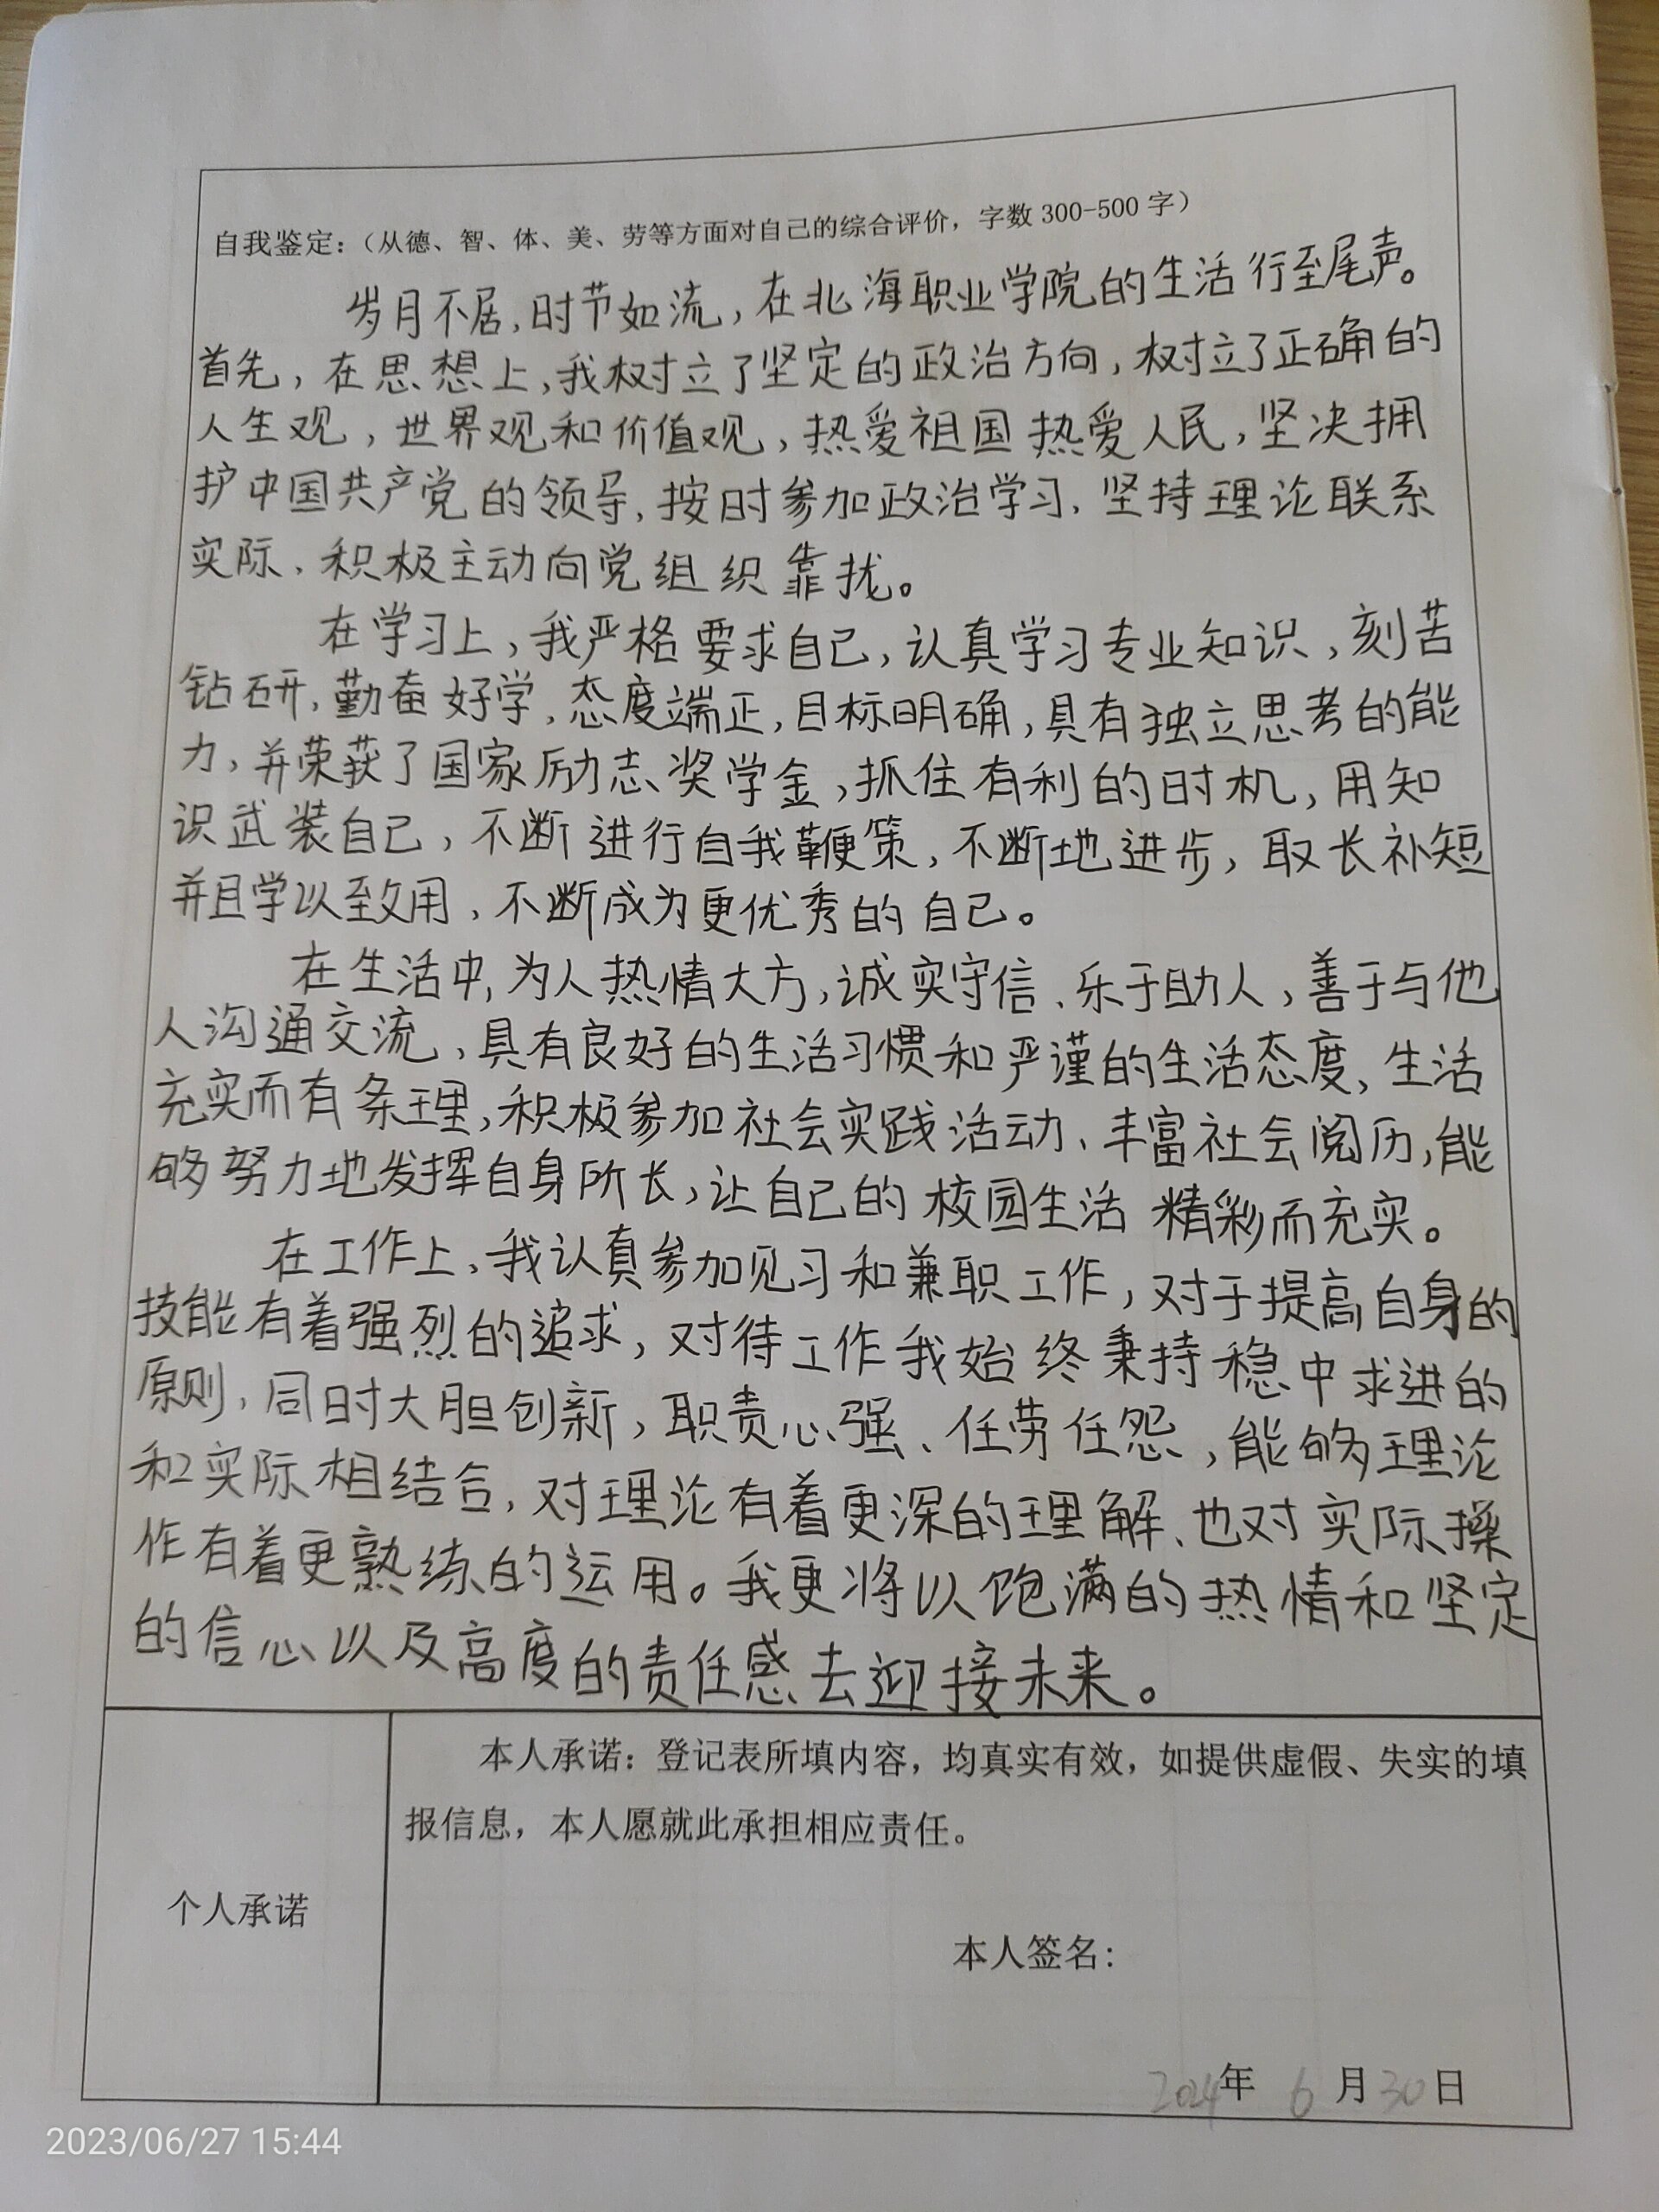 自我鉴定：（从德、智、体、美、劳等方面对自己的综合评价，字数 300-500 字）
岁月不居，时节如流，在北海职业学院的生活行至尾声。
首先，在思想上，我树立了坚定的政治方向，树立了正确的
人生观，世界观和价值观，热爱祖国热爱人民，坚决拥
护中国共产党的领导，按时参加政治学习，坚持理论联系
实际，积极主动向党组织靠扰。
在学习上，我严格要求自己，认真学习专业知识，刻苦
钻研，勤奋好学，态度端正，目标明确，具有独立思考的能
力，并荣获了国家励志奖学金，抓住有利的时机，用知
识武装自己，不断进行自我鞭策，不断地进步，取长补短
并且学以致用，不断成为更优秀的自己。
在生活中，为人热情大方，诚实守信、乐于助人，善于与他
人沟通交流，具有良好的生活习惯和严谨的生活态度，生活
充实而有条理，积极参加社会实践活动、丰富社会阅历，能
够努力地发挥自身所长，让自己的校园生活精彩而充实。
在工作上，我认真参加见习和兼职工作，对于提高自身的
技能有着强烈的追求，对待工作我始终秉持稳中求进的
原则，同时大胆创新，职责心强、任劳任怨，能够理论
和实际相结合，对理论有着更深的理解、也对实际操
作有着更熟练的运用。我更将以饱满的热情和坚定
的信心以及高度的责任感去迎接未来。
本人承诺：登记表所填内容，均真实有效，如提供虚假、失实的填
报信息，本人愿就此承担相应责任。
个人承诺
本人签名：
2024年 6 月 30 日
2023/06/27 15:44